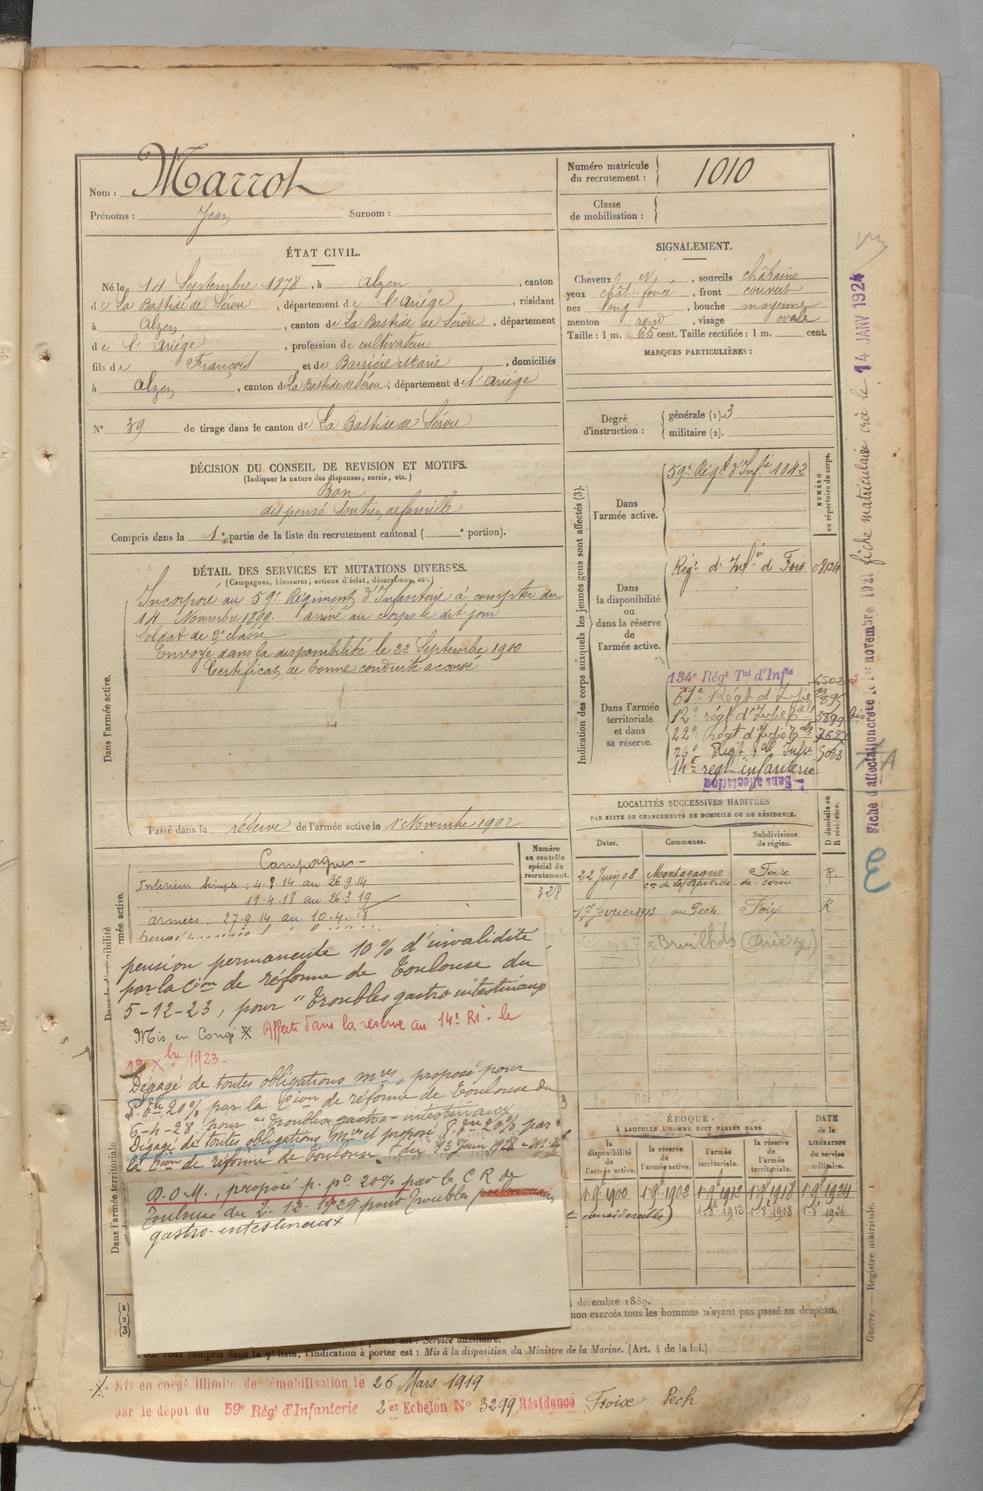 Nom : Marrot
Prénoms : Jean Surnom :
Numéro matricule du recrutement : 1010
Classe de mobilisation :
ÉTAT CIVIL.
Né le 14 Septembre 1878, à Alzen, canton
de La Bastide de Sérou, département de l'Ariège, résidant
à Alzen, canton de La Bastide de Sérou, département
de l'Ariège, profession de cultivateur
fils de François et de Barrière Marie, domiciliés
à Alzen, canton de La Bastide de Sérou, département de l'Ariège
N° 39 de tirage dans le canton de La Bastide de Sérou
SIGNALEMENT.
Cheveux , sourcils châtains
yeux chât. foncé, front couvert
nez long, bouche moyenne
menton rond, visage ovale
Taille : 1 m. 65 cent. Taille rectifiée : 1 m. cent.
MARQUES PARTICULIÈRES :
Degré d'instruction : générale (1). 3
militaire (2).
DÉCISION DU CONSEIL DE REVISION ET MOTIFS.
(Indiquer la nature des dispenses, sursis, etc.)
Bon
dispensé soutien de famille
Compris dans la 1e partie de la liste du recrutement cantonal ( e portion).
DÉTAIL DES SERVICES ET MUTATIONS DIVERSES.
(Campagnes, blessures, actions d'éclat, décorations, etc.)
Dans l'armée active.
Incorporé au 59e Régiment d'Infanterie à compter du
14 Novembre 1899. arrivé au corps le dit jour
Soldat de 2e classe
Envoyé dans la disponibilité le 22 Septembre 1900
Certificat de bonne conduite accordé
Passé dans la réserve de l'armée active le 1 Novembre 1902
Indication des corps auxquels les jeunes gens sont affectés (3).
NUMÉRO au répertoire du corps.
Dans l'armée active.
59e Régt d'Infie 1042
Dans la disponibilité ou dans la réserve de l'armée active.
Régt d'Infie de Foix
Dans l'armée territoriale et dans sa réserve.
134e Régt Tal d'Infie
61e Régt d'Infie
12e régt d'Infie 5399 bis
22e Régt d'Infie
26e Régt
14e régt infanterie
Sans affectation
LOCALITÉS SUCCESSIVES HABITÉES
PAR SUITE DE CHANGEMENTS DE DOMICILE OU DE RÉSIDENCE.
Dates. Communes. Subdivisions de région. D domicile ou R résidence.
22 Juin 08 Montagagne Foix R
con de la Bastide de Sérou
17 février 1913 au Pech Foix R
à Bruilhols (Ariège)
Numéro au contrôle spécial du recrutement.
328
Campagnes
Intérieur Simple : 4.8.14 au 26.9.14
11.4.18 au 26.3.19
armées : 27.9.14 au 10.4.18
pension permanente 10% d'invalidité
par la Cion de réforme de Toulouse du
5-12-23, pour "Troubles gastro intestinaux
Mis en Congé X Affecté dans la réserve au 14e RI. le
1er Xbre 1923.
Dégagé de toutes obligations mres, proposé pour
20% par la Cion de réforme de Toulouse du
pour "Troubles gastro-intestinaux
Dégagé de toutes obligations mres et proposé 20% par
la Cion de réforme de Toulouse du
D.O.M., proposé p. 20% par la C R de
Toulouse du 2-12-1929 pour troubles
gastro-intestinaux
Dans l'armée territoriale
ÉPOQUE
À LAQUELLE L'HOMME DOIT PASSER DANS
la disponibilité de l'armée active. la réserve de l'armée active. l'armée territoriale. la réserve de l'armée territoriale. DATE de la LIBÉRATION du service militaire.
1.9.1900 1.9.1902 1.9.1912 1.9.1918 1.9.1924
1.8.1912 1.8.1918
décembre 1889.
non exercés tous les hommes n'ayant pas passé au drapeau.
à porter est : Service auxiliaire.
l'indication à porter est : Mis à la disposition du Ministre de la Marine. (Art. 4 de la loi.)
X. Mis en congé illimité de démobilisation le 26 Mars 1919
par le dépot du 59e Régt d'Infanterie 2e Echelon N° 3299 Résidence Foix Pech
fiche matriculaire créée le 14 JANV 1924
Guerre. — Registre matricule. 1